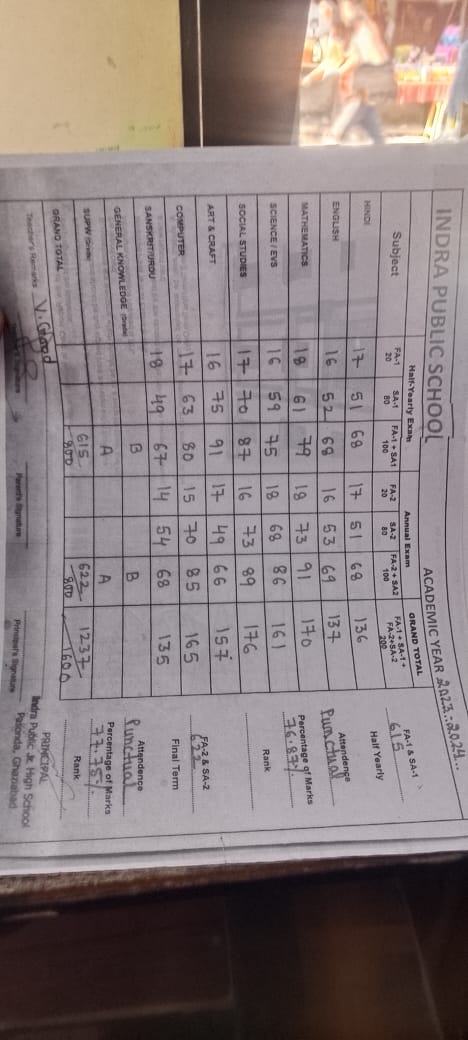 INDRA PUBLIC SCHOOL
ACADEMIC YEAR 2023-2024
Subject Half-Yearly Exam Annual Exam GRAND TOTAL
FA-1 20 SA-1 80 FA-1 + SA1 100 FA-2 20 SA-2 80 FA-2 + SA2 100 FA-1 + SA-1 + FA-2+SA-2 200
HINDI 17 51 68 17 51 68 136
ENGLISH 16 52 68 16 53 69 137
MATHEMATICS 18 61 79 18 73 91 170
SCIENCE / EVS 16 59 75 18 68 86 161
SOCIAL STUDIES 17 70 87 16 73 89 176
ART & CRAFT 16 75 91 17 49 66 157
COMPUTER 17 63 80 15 70 85 165
SANSKRIT/URDU 18 49 67 14 54 68 135
GENERAL KNOWLEDGE (Grade) B B
SUPW (Grade) A A
GRAND TOTAL 615/800 622/800 1237/1600
FA-1 & SA-1
615
Half Yearly
Attendence
Punctual
Percentage of Marks
76.87%
Rank
FA-2 & SA-2
622
Final Term
Attendence
Punctual
Percentage of Marks
77.75%
Rank
Teacher's Remarks V. Good
Parent's Signature
Principal's Signature
PRINCIPAL
Indra Public Jr. High School
Pasonda, Ghaziabad